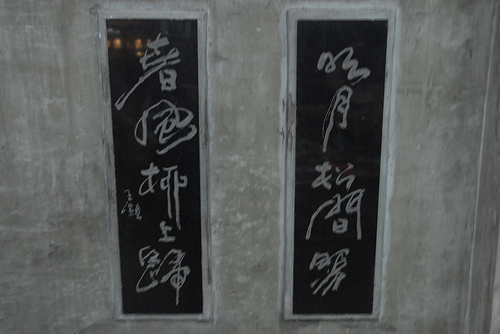 明月松間照
春風柳上歸